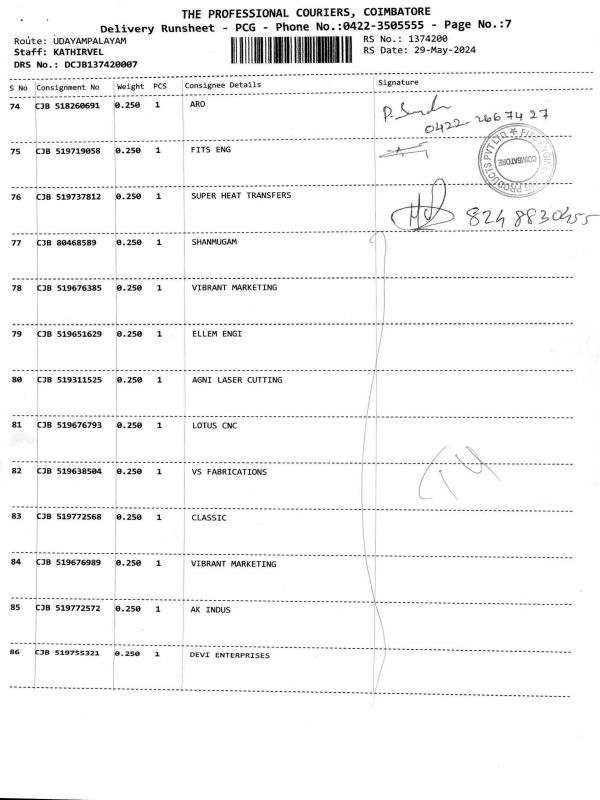 THE PROFESSIONAL COURIERS, COIMBATORE
Delivery Runsheet - PCG - Phone No.:0422-3505555 - Page No.:7
Route: UDAYAMPALAYAM RS No.: 1374200
Staff: KATHIRVEL RS Date: 29-May-2024
DRS No.: DCJB137420007
S No Consignment No Weight PCS Consignee Details Signature
74 CJB 518260691 0.250 1 ARO
0422 2667427
75 CJB 519719058 0.250 1 FITS ENG
COIMBATORE
76 CJB 519737812 0.250 1 SUPER HEAT TRANSFERS
8248830455
77 CJB 80468589 0.250 1 SHANMUGAM
78 CJB 519676385 0.250 1 VIBRANT MARKETING
79 CJB 519651629 0.250 1 ELLEM ENGI
80 CJB 519311525 0.250 1 AGNI LASER CUTTING
81 CJB 519676793 0.250 1 LOTUS CNC
82 CJB 519638504 0.250 1 VS FABRICATIONS
83 CJB 519772568 0.250 1 CLASSIC
84 CJB 519676989 0.250 1 VIBRANT MARKETING
85 CJB 519772572 0.250 1 AK INDUS
86 CJB 519755321 0.250 1 DEVI ENTERPRISES